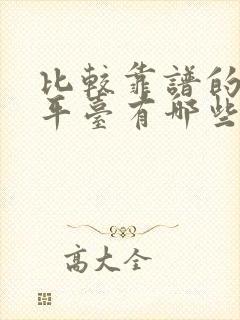 比較靠譜的
平臺有哪些
高大全